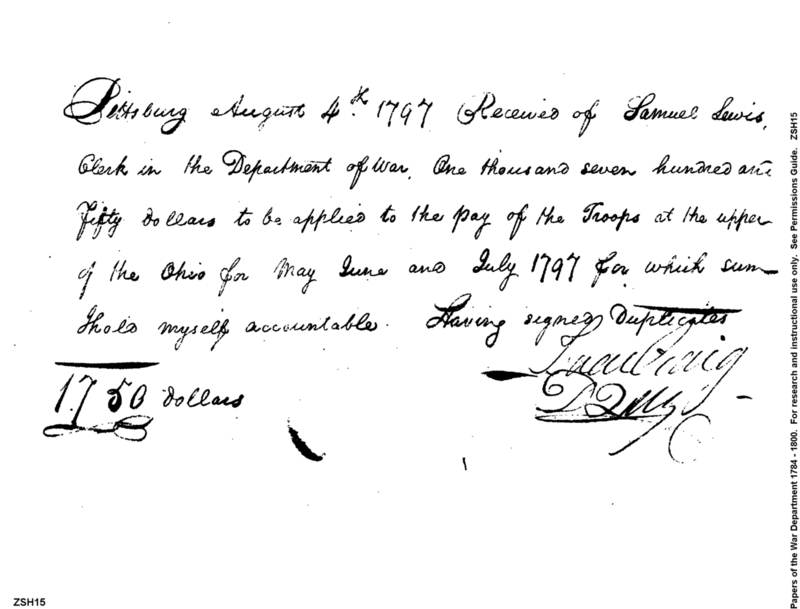 Pittsburg August 4th. 1797 Received of Samuel Lewis,
Clerk in the Department of War, One thousand seven hundred and
Fifty dollars to be applied to the pay of the Troops at the upper
of the Ohio for May June and July 1797 for which sum
I hold myself accountable. Having signed Duplicates
Isaac Craig
1750 dollars
DQMG
ZSH15
Papers of the War Department 1784 - 1800. For research and instructional use only. See Permissions Guide. ZSH15